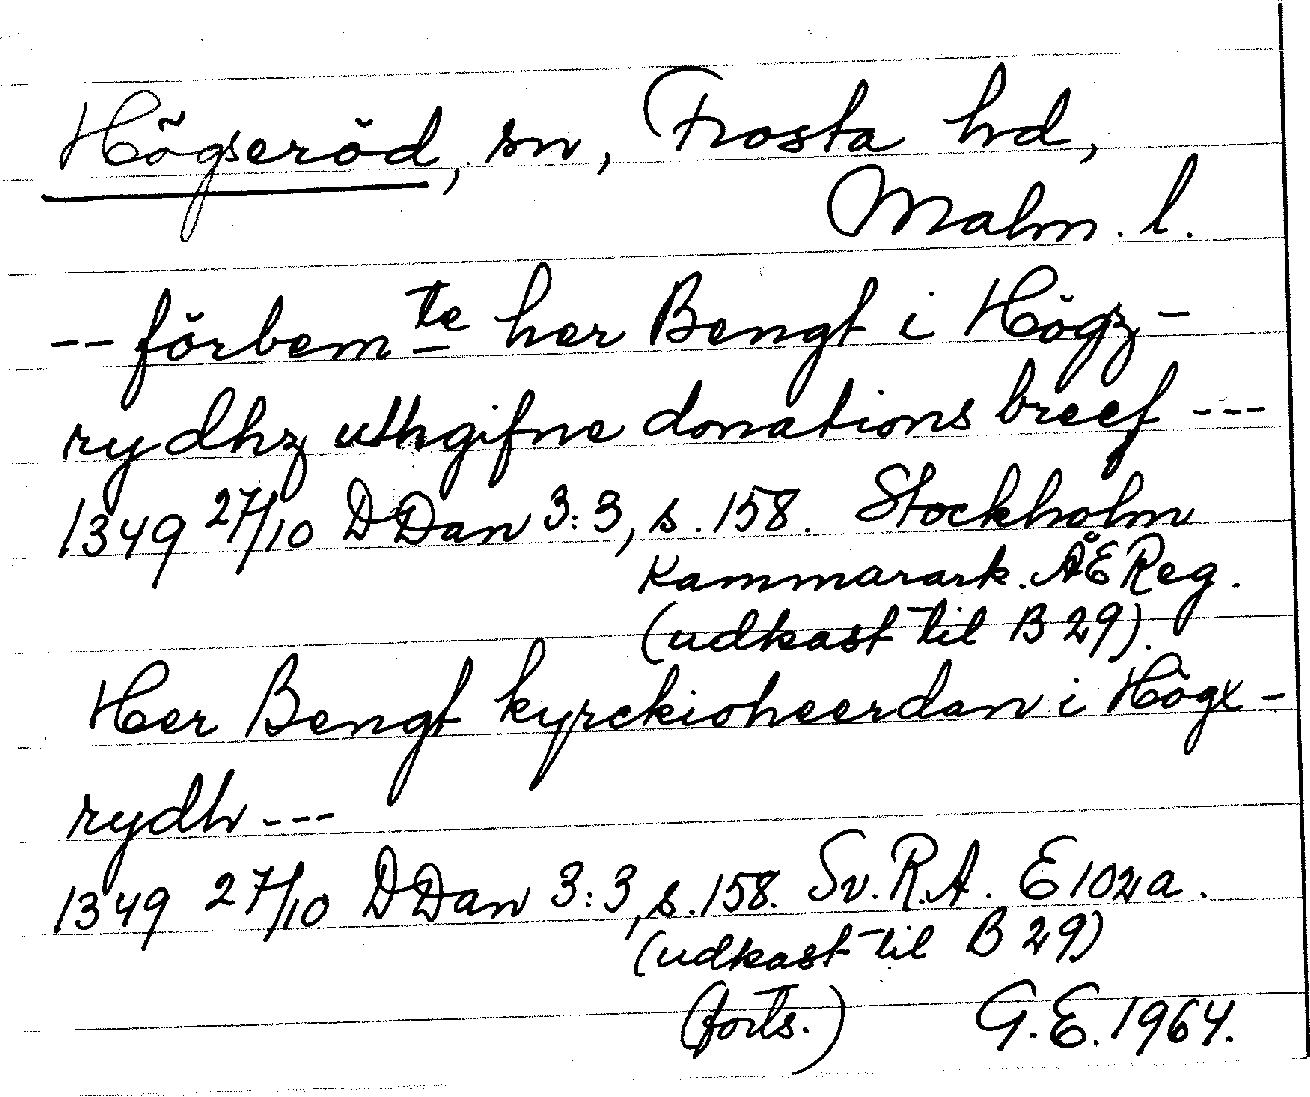 Högseröd, sn, Frosta hd,
Malm. l.
-- förbem<sup>te</sup> her Bengt i Högz-
rydhz uthgifne donations breef ---
1349 27/10 DDan 3:3, s. 158. Stockholm
Kammarark. ÅEReg.
(udkast til B 29).
Her Bengt kyrckioheerdan i Högx-
rydh ---
1349 27/10 DDan 3:3, s. 158. Sv. R.A. E 102a.
(udkast til B 29)
(forts.) G.E. 1964.